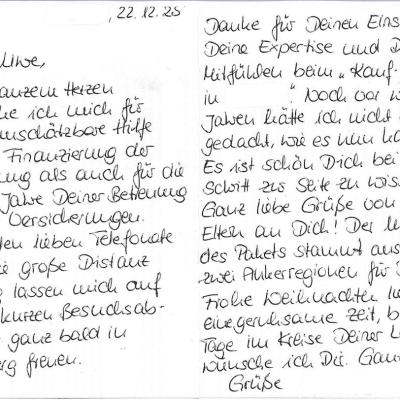 , 22.12.25
Uwe,
ganzem Herzen
ich mich für
unschätzbare Hilfe
Finanzierung der
als auch für die
Jahre Deiner Betreuung
Versicherungen.
lieben Telefonate
große Distanz
lassen mich auf
kurzen Besuchsab-
ganz bald in
freuen.
Danke für Deinen Eins
Deine Expertise und D
Mitfühlen beim „Kauf-
in “. Noch vor
Jahren hätte ich nicht
gedacht, wie es nun
Es ist schön Dich bei
Schritt zur Seite zu wiss
Ganz liebe Grüße von
Eltern an Dich! Der
des Pakets stammt aus
zwei Ankerregionen für
Frohe Weihnachten
eine geruhsame Zeit, b
Tage im Kreise Deiner L
wünsche ich Dir. Gan
Grüße